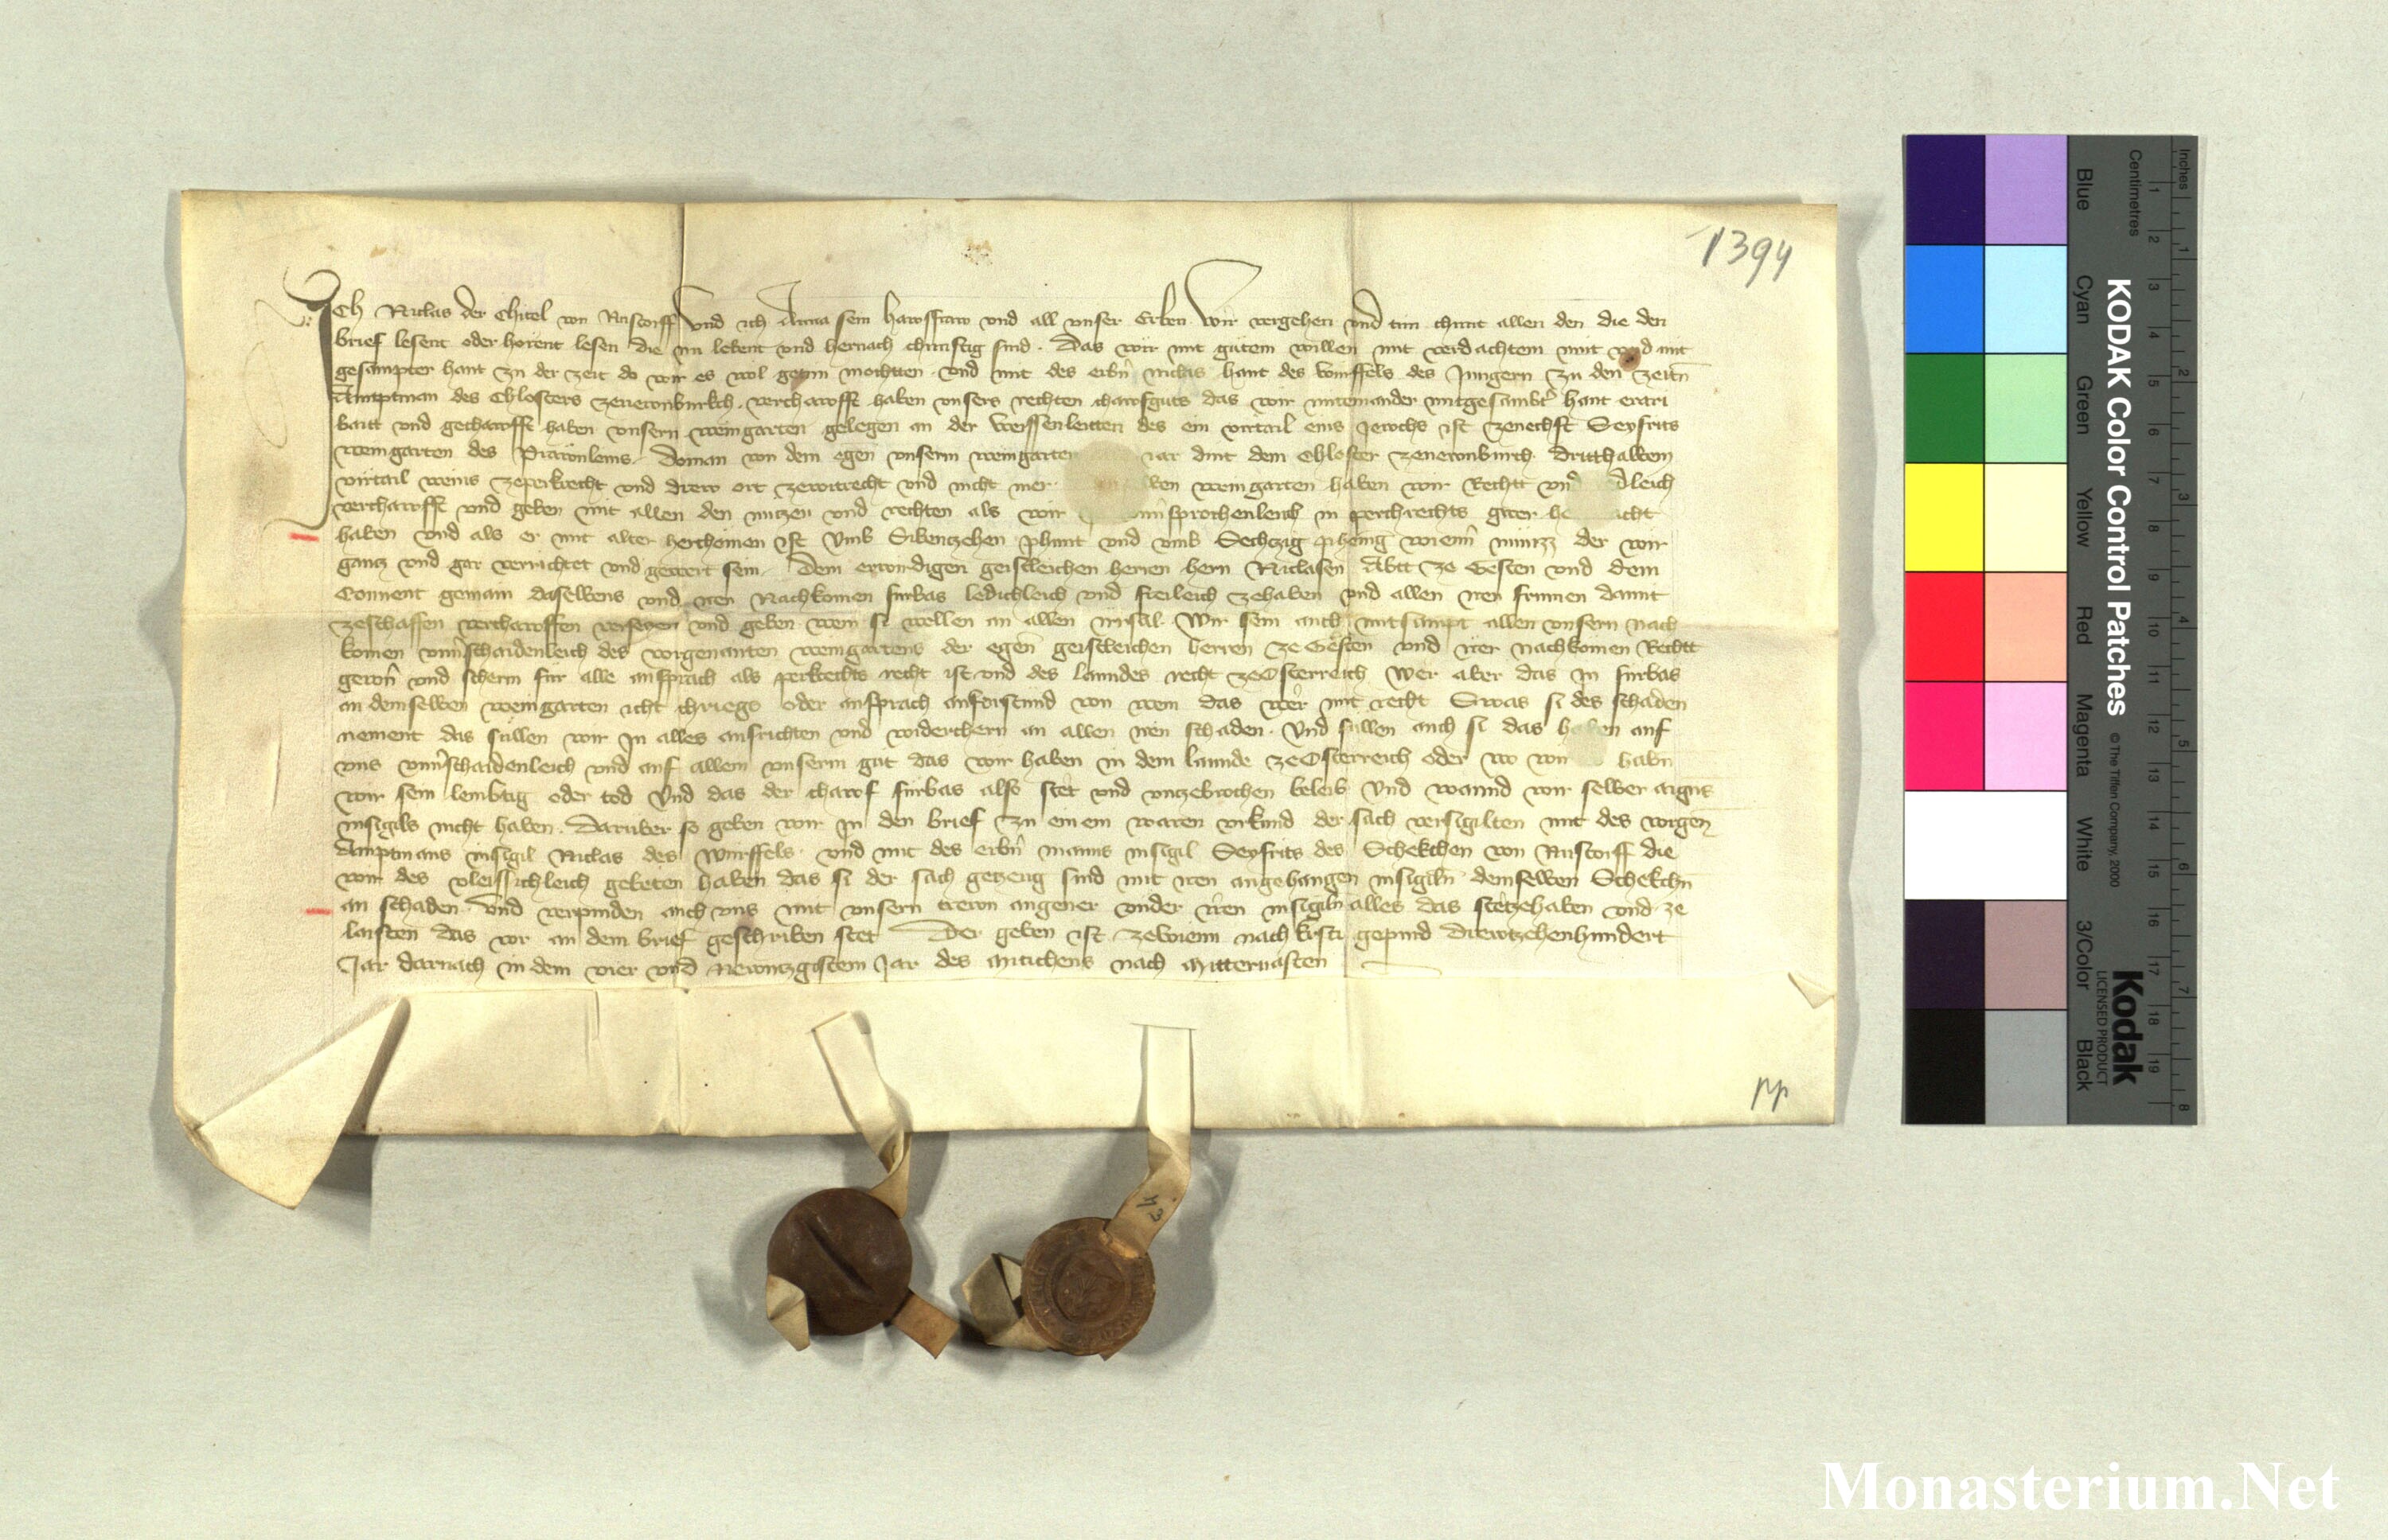 1394
Ich Niclas der Chitel von Nustorff und ich Anna sein hawsfraw und all unser Erben Wir vergehen und tun chunt allen den die den
brief lesent oder horent lesen die nu lebent und hernach chunftig sind. Das wir mit gutem willen mit verdachtem mut und mit
gesampter hant zu der zeit do wir es wol getun mochten und mit des erbn niclas hant des Wurffels des Jungern zu den zeitn
Amptman des Chlosters zenewnburkch. verchawfft haben unsers rechten chawfguts das wir miteinander mitgesambter hant erari
baitt und gechawfft haben unsern weingarten gelegen an der Weissenleitten des ein virtail eins Jewchs ist zenechst Seyfrits
weingarten des Prawnleins. Doman von dem egen unserm weingarten iar dint dem Chloster zenewnburch. drithalbem
virtail weins zeperkrecht und drew ort zevoitrecht und nicht mer. weingarten haben wir Recht und dleich
verchawfft und geben mit allen den nutzen und rechten als wir unsprochenleich in perchrechts gwer acht
haben und als er mit alter herchomen ist Umb Sibenczehen phunt und umb Sechczig phening wienn munzz der wir
gancz und gar verrichtet und gewert sein. Dem erwirdigen geistleichen herren hern Niclasen Abtt ze Gesten und dem
Convent gemain daselbens und iren Nachkomen furbas ledichleich und freileich zehaben und allen iren frumen damit
zeschaffen verchawffen versetzen und geben wem si wellen an allen irrsal. Wir sein auch mitsampt allen unsern nach
komen unuerschaidenleich des vorgenanten weingartens der egen geistleichen herren ze Gesten und irer nachkomen Rechtt
gewern und scherm fur alle ansprach als perkrechts recht ist und des lanndes recht zeOsterreich Wer aber das in furbas
an demselben weingarten icht chriegs oder ansprach auferstund von wem das wer mit recht Swas si des schaden
nement das sullen wir In alles ausrichten und widerchern an allen iren schaden. Und sullen auch si das haben auf
uns unuerschaidenleich und auf allem unserm gut das wir haben in dem lannde zeOsterreich oder wo wir habn
wir sein lembtig oder tod Und das der chawf furbas also stet und unzebrochen beleib Und wannd wir selber aigens
insigils nicht haben. Daruber so geben wir In den brief zu einem waren urkund der sach versigilten mit des vorgen
Amptmans insigil Niclas des Wurffels. und mit des erbn manns insigil Seyfrits des Schekchen von Nustorff die
wir des vleissichleich gebeten haben das si der sach getzeug sind mit iren angehangen insigiln demselben Schekchn
an schaden. Und verpinden auch uns mit unsern trewn angener under iren insigiln alles das stetzehaben und ze
laisten das vor an dem brief geschriben stet Der geben ist zewienn nach kristi gepurd drewtzehenhundert
Jar darnach in dem vier und Newntzgistem Jar des Mitichens nach Mittervasten
KODAK Color Control Patches © The Tiffen Company, 2000
Kodak
LICENSED PRODUCT
Blue Cyan Green Yellow Red Magenta White 3/Color Black
Centimetres 1 2 3 4 5 6 7 8 9 10 11 12 13 14 15 16 17 18 19
Inches 1 2 3 4 5 6 7 8
Monasterium.Net